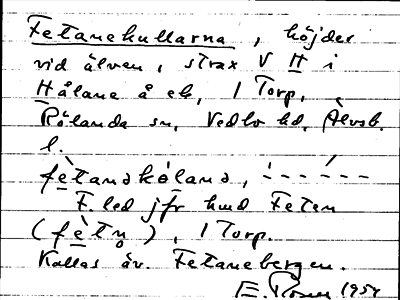 Fetanekullarna, höjder
vid älven, strax V H i
Hålane å ek, 1 Torp,
Rölanda sn, Vedbo hd, Älvsb.
l.
fètanəkòlana,
F. led jfr hmd Feten
(fètn̥), 1 Torp.
Kallas äv. Fetanebergen.
1954